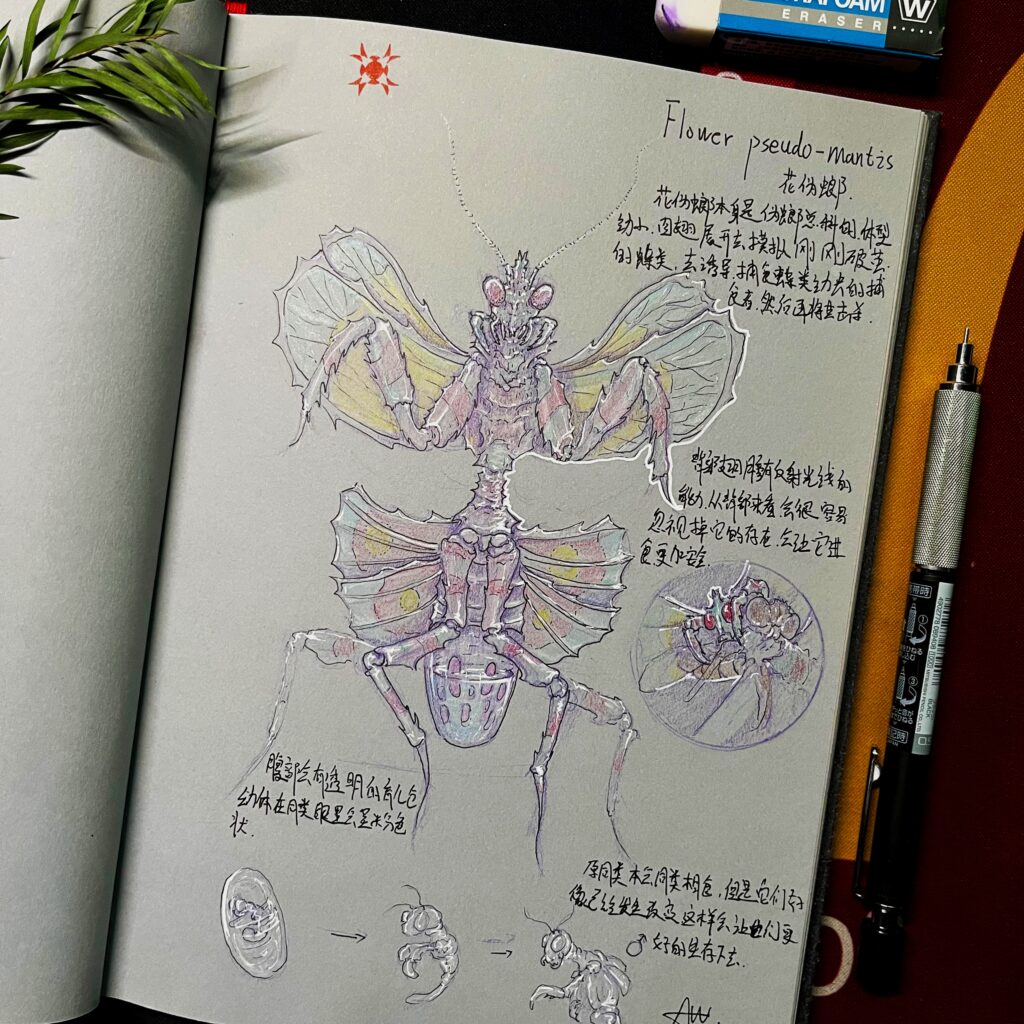 FOAM W
ERASER
Flower pseudo-mantis
花伪螂
花伪螂本身是伪螂总科的,体型
幼小,因翅展开去模拟刚刚破茧
的蝶类,去诱导捕食蝶类幼虫的捕
食者,然后再将其击杀.
背部翅膀有反射光线的
能力,从背部来看会很容易
忽视掉它的存在,会让它进
食更加安全.
腹部会有透明的育儿包
幼体在同类眼里会呈米分色
状.
原同类本会同类相食,但是它们好
像已经发生改变,这样会让她们更
♂ 好的生存下去.
AW.
BLACK